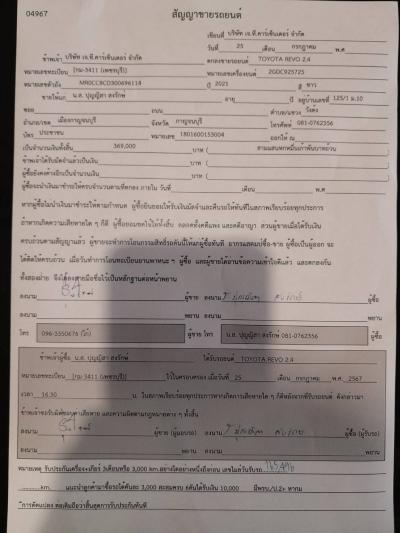 04967
สัญญาขายรถยนต์
เขียนที่ บริษัท เจ.ที.คาร์เซ็นเตอร์ จำกัด
วันที่ 25 เดือน กรกฎาคม พ.ศ
ข้าพเจ้า บริษัท เจ.ที.คาร์เซ็นเตอร์ จำกัด ตกลงขายรถยนต์ TOYOTA REVO 2.4
หมายเลขทะเบียน (กม-3411 (เพชรบุรี)) หมายเลขเครื่องยนต์ 2GDC925725
หมายเลขตัวถัง MR0CC8CD300496118 ปี 2021 สี ขาว
ขายให้แก่ น.ส. ปุญญิสา สงรักษ์ อายุ ปี อยู่บ้านเลขที่ 125/1 ม.10
ซอย ถนน ตำบล/แขวง วังด้ง
อำเภอ/เขต เมืองกาญจนบุรี จังหวัด กาญจนบุรี โทรศัพท์ 081-0762356
บัตร ประชาชน หมายเลข 1801600153004 ออกให้ ณ
เป็นจำนวนเงินทั้งสิ้น 369,000 บาท ( สามแสนหกหมื่นเก้าพันบาทถ้วน )
ข้าพเจ้าได้รับมัดจำแล้วเป็นเงิน บาท ( )
ผู้ซื้อยังคงค้างอีกเป็นจำนวนเงิน บาท ( )
ผู้ซื้อจะนำเงินมาชำระให้ครบจำนวนตามที่ตกลง ภายใน วันที่ เดือน พ.ศ
หากผู้ซื้อไม่นำเงินมาชำระให้ตามกำหนด ผู้ซื้อยินยอมให้ริบเงินมัดจำและคืนรถให้ทันทีในสภาพเรียบร้อยทุกประการ
ถ้าหากเกิดความเสียหายใด ๆ ก็ดี ผู้ซื้อยอมชดใช้ให้ทั้งสิ้น ตลอดทั้งคดีแพ่ง และคดีอาญา ส่วนผู้ขายเมื่อได้รับเงิน
ครบถ้วนตามสัญญาแล้ว ผู้ขายจะทำการโอนกรรมสิทธิ์รถคันนี้ให้แก่ผู้ซื้อทันที อากรแสตมป์ซื้อ-ขาย ผู้ซื้อเป็นผู้ออก จะ
ได้ติดให้ครบถ้วน เมื่อวันทำการโอนทะเบียนยานพาหนะ ฯ ผู้ซื้อ และผู้ขายได้อ่านข้อความเข้าใจดีแล้ว และตกลงกัน
ทั้งสองฝ่าย จึงได้ลงลายมือชื่อไว้เป็นหลักฐานต่อหน้าพยาน
ลงนาม ผู้ขาย ลงนาม ปุญญิสา สงรักษ์ ผู้ซื้อ
ลงนาม พยาน ลงนาม พยาน
โทร ผู้ขาย โทร น.ส. ปุญญิสา สงรักษ์ 081-0762356 ผู้ซื้อ
ข้าพเจ้าผู้ซื้อ น.ส. ปุญญิสา สงรักษ์ ได้รับรถยนต์ TOYOTA REVO 2.4
หมายเลขทะเบียน (กม-3411 (เพชรบุรี)) ไว้ในครอบครอง เมื่อวันที่ 25 เดือน กรกฎาคม พ.ศ 2567
เวลา 16.30 น. ในสภาพเรียบร้อยทุกประการหากเกิดการเสียหายใด ๆ ก็ดีหลังจากที่รับรถยนต์ ดังกล่าวมา
ข้าพเจ้าขอรับผิดชอบค่าเสียหาย และความผิดตามกฎหมายต่าง ๆ ทั้งสิ้น
ลงนาม ผู้ขาย (ผู้มอบรถ) ลงนาม ปุญญิสา สงรักษ์ ผู้ซื้อ (ผู้รับรถ)
ลงนาม พยาน ลงนาม พยาน
หมายเหตุ รับประกันเครื่อง+เกียร์ 3เดือนหรือ 3,000 km.อย่างใดอย่างหนึ่งถึงก่อน เลขไมล์วันรับรถ
km. แนะนำลูกค้ามาซื้อรถได้คันละ 3,000 สะสมครบ 6คันได้รับเงิน 10,000 มีพรบ./ป.2+
*การดัดแปลง ต่อเติมถือว่าสิ้นสุดการรับประกันทันที